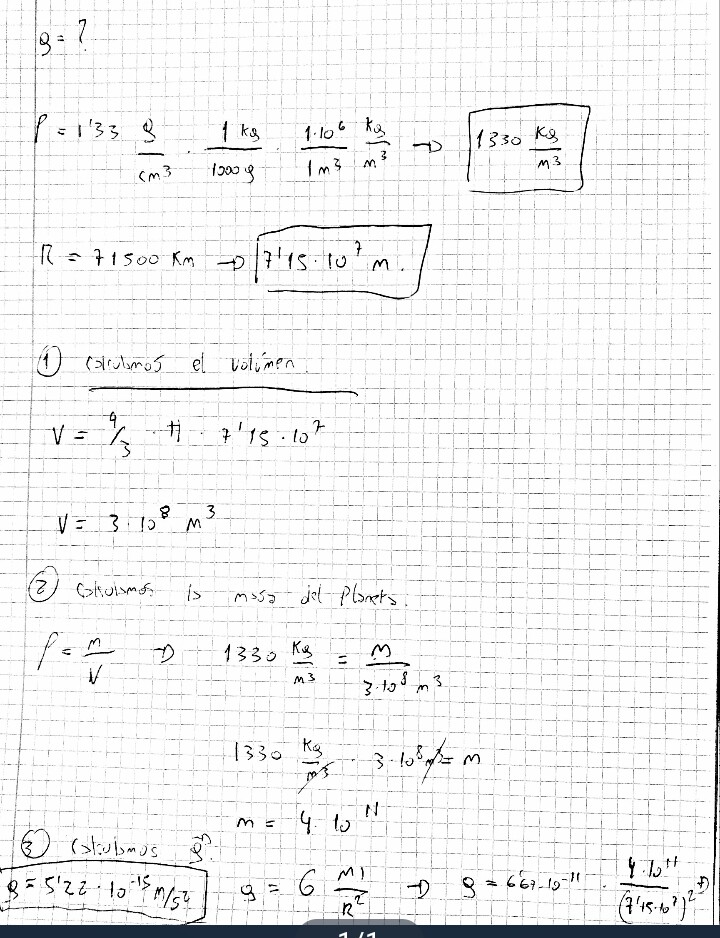 g = ?
ρ = 1'33 g/cm³ · 1 kg/1000 g · 1·10⁶/1 m³ kg/m³ → 1330 kg/m³
R = 71500 Km → 7'15·10⁷ m.
① Calculamos el volúmen.
V = 4/3 · π · 7'15 · 10⁷
V = 3·10⁸ m³
② Calculamos la masa del Planeta.
ρ = m/V → 1330 kg/m³ = m/3·10⁸ m³
1330 kg/m³ · 3·10⁸ m³ = m
m = 4·10¹¹
③ Calculamos g.
g = 5'22·10⁻¹⁵ m/s² g = G M1/R² → g = 6'67·10⁻¹¹ · 4·10¹¹/(7'15·10⁷)² →
1/1